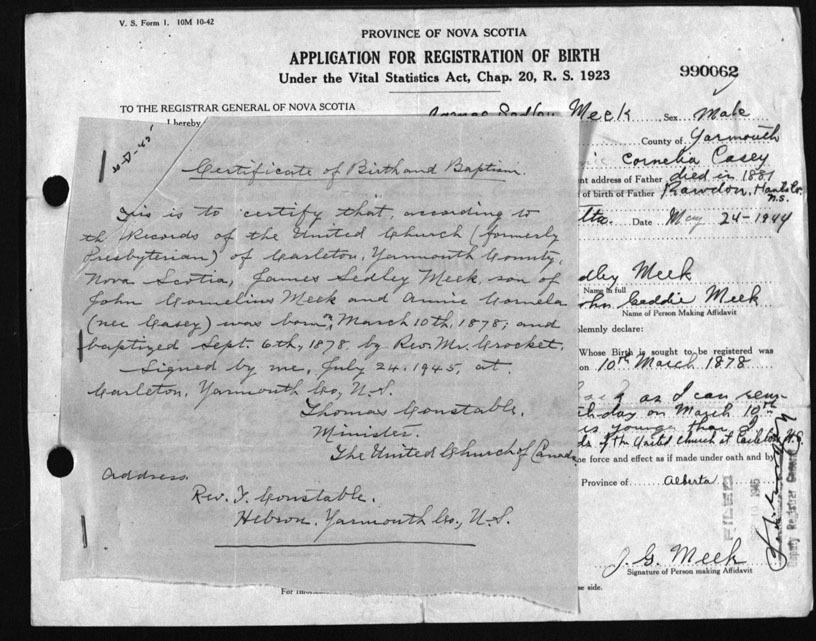 V. S. Form 1. 10M 10-42
PROVINCE OF NOVA SCOTIA
APPLICATION FOR REGISTRATION OF BIRTH
Under the Vital Statistics Act, Chap. 20, R. S. 1923
990062
TO THE REGISTRAR GENERAL OF NOVA SCOTIA
I hereby
Meek Sex Male
County of Yarmouth
Cornelia Casey
address of Father died in 1881
of birth of Father Rawdon, Hants Co. N.S.
Date May 24-1944
Certificate of Birth and Baptism.
This is to certify that, according to
the Records of the United Church (formerly
Presbyterian) of Carleton, Yarmouth County,
Nova Scotia, James Sedley Meek, son of
John Cornelius Meek and Annie Cornela
(nee Casey) was born March 10th, 1878; and
baptized Sept. 6th, 1878 by Rev. Mr. Crocket.
Signed by me, July 24. 1945, at
Carleton, Yarmouth Co., N.S.
Thomas Constable.
Minister.
The United Church of Canada
Address.
Rev. T. Constable.
Hebron. Yarmouth Co., N.S.
dley Meek
Name in full
ohn Geddie Meek
Name of Person Making Affidavit
olemnly declare:
Whose Birth is sought to be registered was
on 10th March 1878
as I can rem-
thday on March 10th
is younger than I
of the United Church at Carleton N.S.
force and effect as if made under oath and by
Province of Alberta
FILED
Deputy Registrar General
J. G. Meek
Signature of Person making Affidavit
se side.